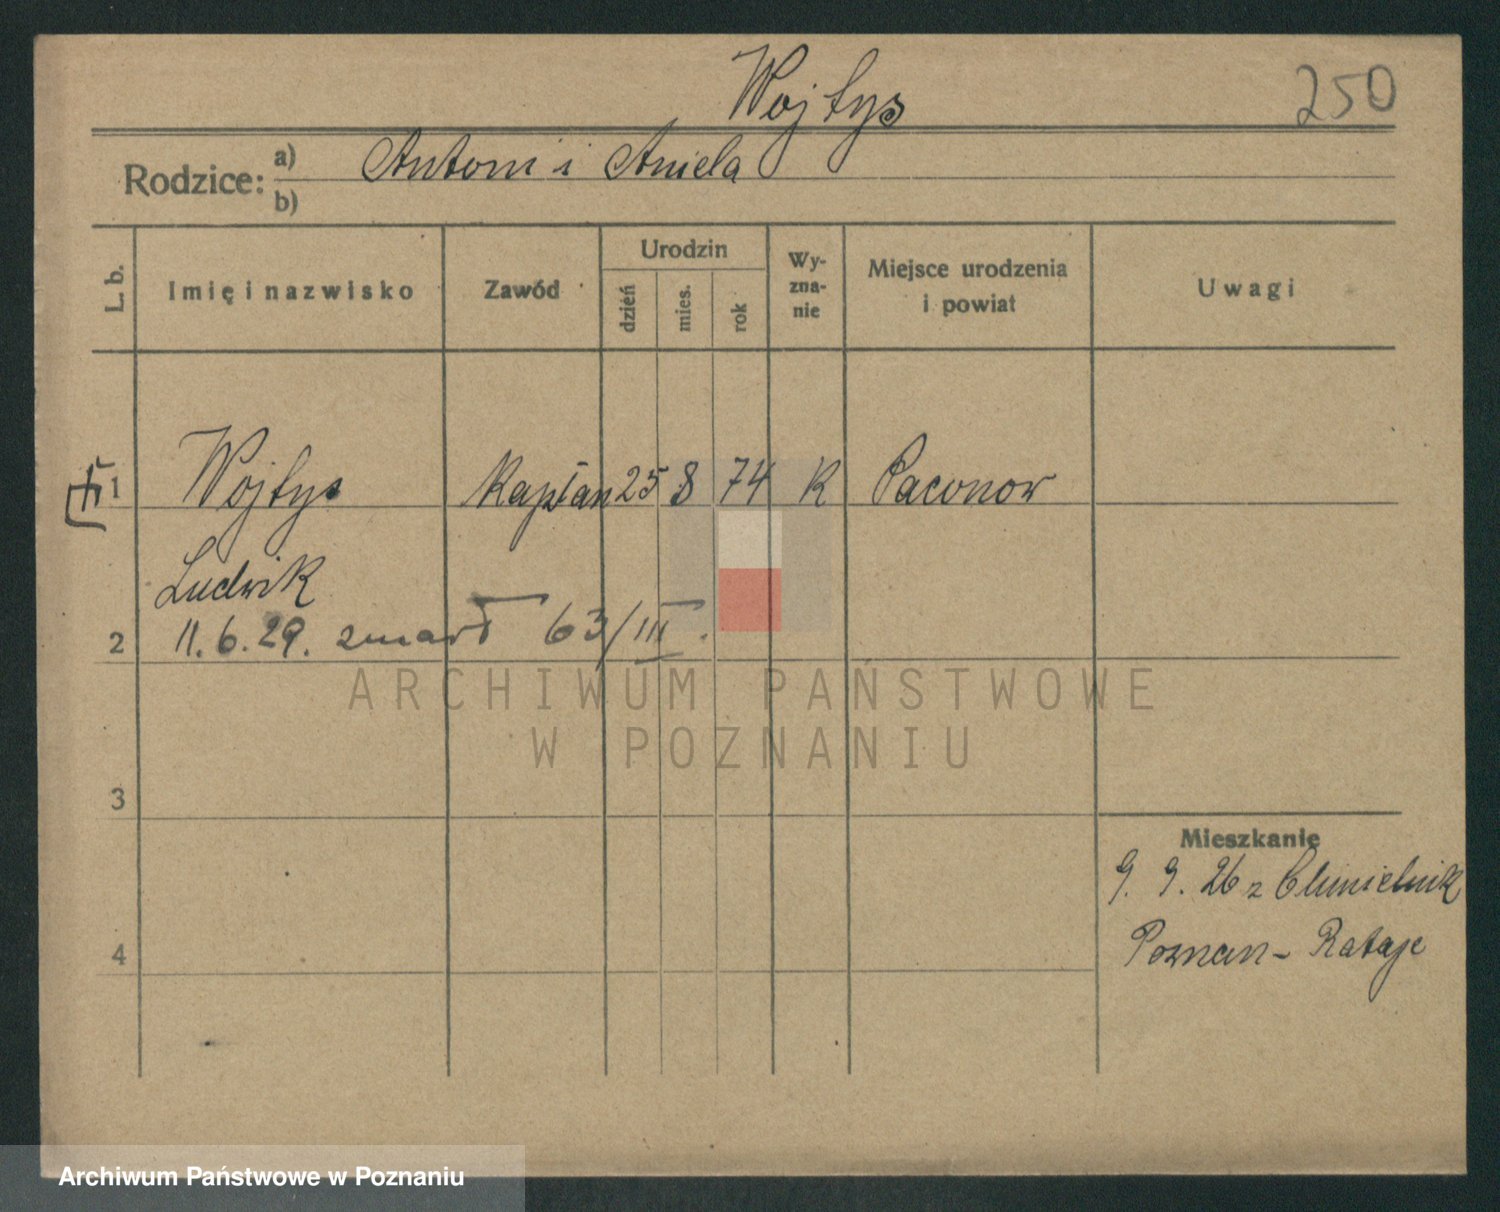 Wojtys
250
Rodzice: a) Antoni i Aniela
b)
L. b.
Imię i nazwisko
Zawód
Urodzin
dzień
mies.
rok
Wy-
zna-
nie
Miejsce urodzenia
i powiat
Uwagi
1 Wojtys Kapłan 25 8 74 K Paconow
Ludwik
2 11. 6. 29. zmarł 63/III.
ARCHIWUM PAŃSTWOWE
W POZNANIU
3
Mieszkanie
9. 9. 26 z Chmielnik
4 Poznan - Rataje
Archiwum Państwowe w Poznaniu